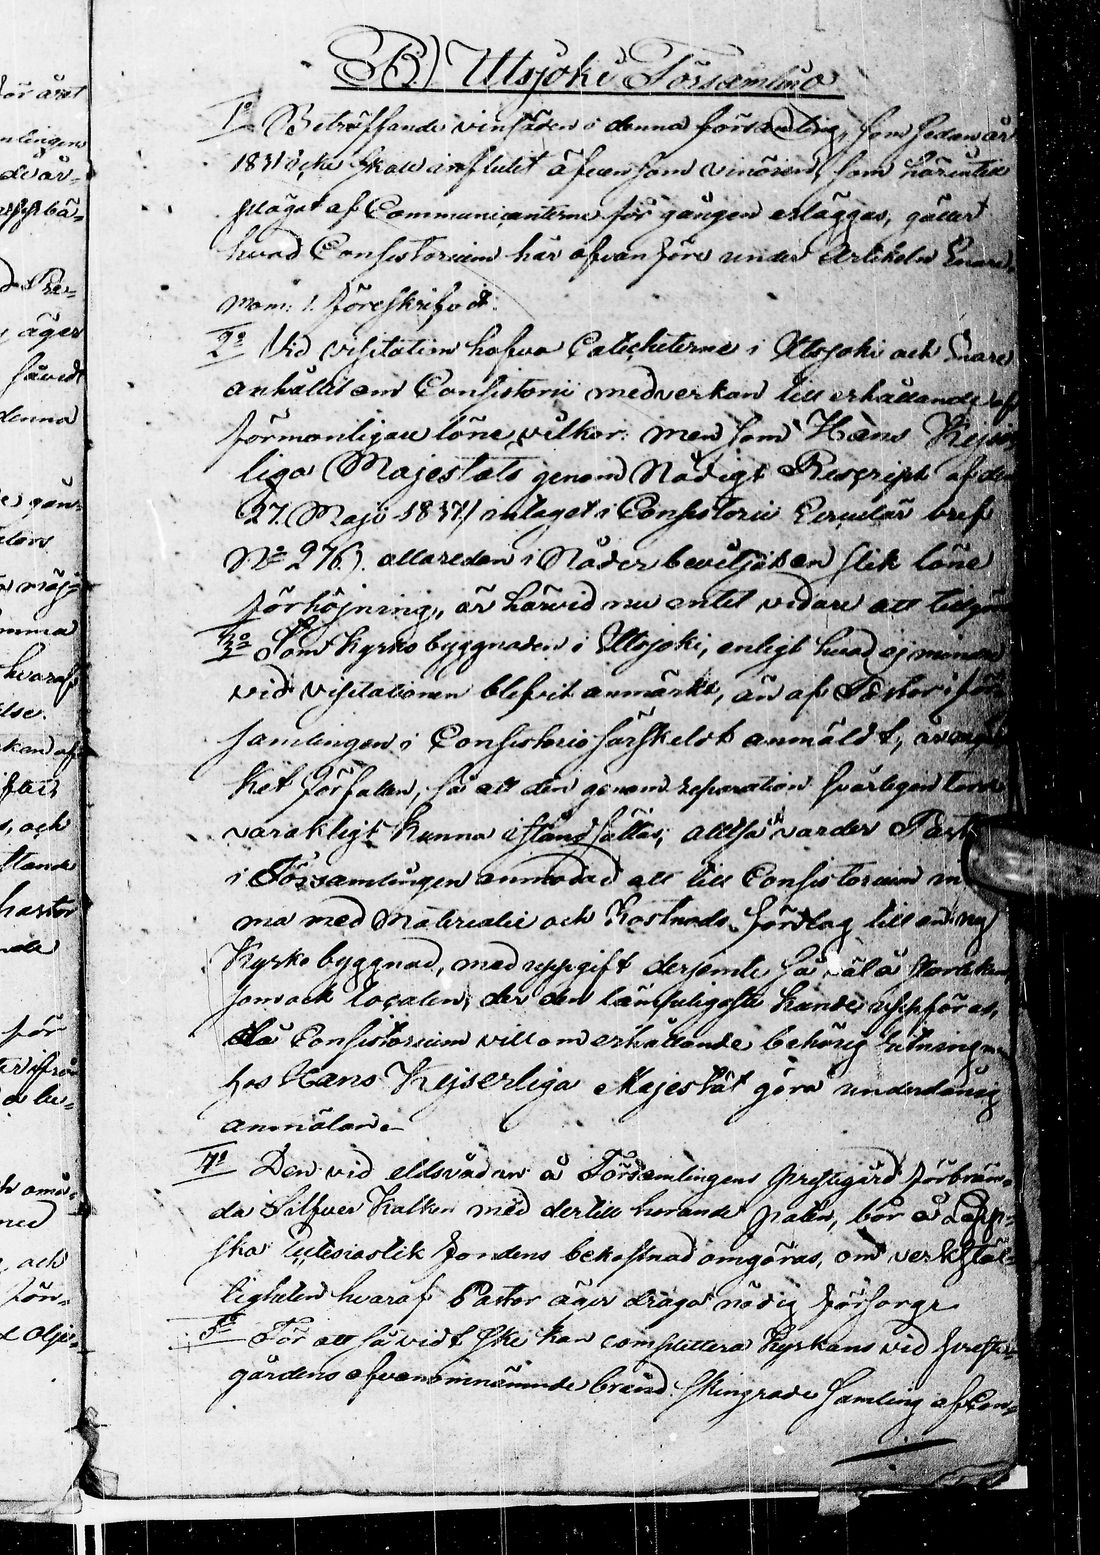 B.) Utsjoki Församling
1º Beträffande vinsäden i denna församling, som sedan år
1831 icke skall influtit äfvensom vinören, som härintill
plägat af Communicanterne för gången erläggas, gäller
hvad Consistorium här ofvanföre under Artikeln Enare
mom: 1. föreskrifvit.
2º Vid visitation hafva Catecheterne i Utsjoki och Enare
anhållit om Consistorii medverkan till erhållande af
förmonligare löne vilkor: men som Hans Kejser
liga Majestäts genom Nådigt Rescript af den
27. Maji 1837 intaget i Consistorii Circulär bref
Nº 276). allaredan i Nåder beviljat en slik löne
förhöjning, är härvid nu intet vidare att tillgöra
3º Som Kyrkobyggnaden i Utsjoki, enligt hvad ej mindre
vid visitationen blifvit anmärkt, än af Pastor i för
samlingen i Consistorio särskeldt anmäldt, är
ket förfallen, så att den genom reparation svårligen torde
varaktigt kunna iståndsättas; alltså varder Past
i Församlingen anmodad att till Consistorium in
ma med Materialie och Kostnads förslag till en ny
Kyrkobyggnad, med uppgift derjemte så väl å storleken,
som ock localen, der den lämpeligast kunde uppföras,
då Consistorium vill om erhållande behörig ritning
hos Hans Kejserliga Majestät göra underdånig
anmälan.
4º Den vid eldsvådan å Församlingens prestgård förbrän-
da Silfver Kalken med dertill hörande paten, bör å Lapp-
ska Ecclesiastik fondens bekostnad omgöras, om verkstäl-
ligheten hvaraf Pastor äger draga nödig försorg.
5º För att så vidt ske kan complettera Kyrkans vid prest-
gårdens ofvanomnämnde brand skingrade samling af Con-
för året
mlingen
de är-
bä-
äger
såvidt
denna
hvaraf
else.
, och
och
för
med
, och